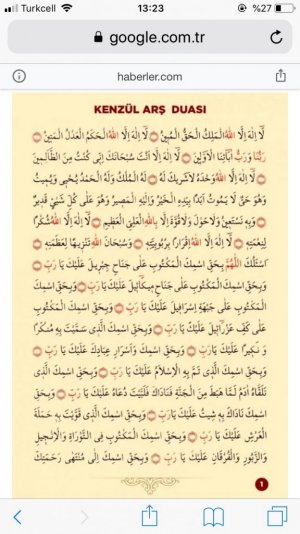 Turkcell 13:23 %27
google.com.tr
haberler.com
KENZÜL ARŞ DUASI
لَا اِلٰهَ اِلَّا اللهُ الْمَلِكُ الْحَقُّ الْمُبِينُ لَا اِلٰهَ اِلَّا اللهُ الْحَكَمُ الْعَدْلُ الْمَتِينُ
رَبُّنَا وَرَبُّ اٰبَٓائِنَا الْاَوَّلِينَ لَا اِلٰهَ اِلَّٓا اَنْتَ سُبْحَانَكَ اِنِّى كُنْتُ مِنَ الظَّالِمِينَ
لَا اِلٰهَ اِلَّا اللهُ وَحْدَهُ لَا شَرِيكَ لَهُ لَهُ الْمُلْكُ وَلَهُ الْحَمْدُ يُحْيِى وَيُمِيتُ
وَهُوَ حَىٌّ لَا يَمُوتُ اَبَدًا بِيَدِهِ الْخَيْرُ وَاِلَيْهِ الْمَصِيرُ وَهُوَ عَلٰى كُلِّ شَيْئٍ قَدِيرٌ
وَبِهِ نَسْتَعِينُ وَلَا حَوْلَ وَلَا قُوَّةَ اِلَّا بِاللهِ الْعَلِىِّ الْعَظِيمِ لَا اِلٰهَ اِلَّا اللهُ شُكْرًا
لِنِعْمَتِهِ لَا اِلٰهَ اِلَّا اللهُ اِقْرَارًا بِرُبُوبِيَّتِهِ وَسُبْحَانَ اللهِ تَنْزِيهًا لِعَظَمَتِهِ
اَسْئَلُكَ اللّٰهُمَّ بِحَقِّ اسْمِكَ الْمَكْتُوبِ عَلٰى جَنَاحِ جِبْرِيلَ عَلَيْكَ يَا رَبِّ
وَبِحَقِّ اسْمِكَ الْمَكْتُوبِ عَلٰى جَنَاحِ مِيكَائِيلَ عَلَيْكَ يَا رَبِّ وَبِحَقِّ اسْمِكَ
الْمَكْتُوبِ عَلٰى جَبْهَةِ اِسْرَافِيلَ عَلَيْكَ يَا رَبِّ وَبِحَقِّ اسْمِكَ الْمَكْتُوبِ
عَلٰى كَفِّ عَزْرَائِيلَ عَلَيْكَ يَا رَبِّ وَبِحَقِّ اسْمِكَ الَّذِى سَمَّيْتَ بِهِ مُنْكَرًا
وَ نَكِيرًا عَلَيْكَ يَا رَبِّ وَبِحَقِّ اسْمِكَ وَاَسْرَارِ عِبَادِكَ عَلَيْكَ يَا رَبِّ
وَبِحَقِّ اسْمِكَ الَّذِى تَمَّ بِهِ الْاِسْلَامُ عَلَيْكَ يَا رَبِّ وَبِحَقِّ اسْمِكَ الَّذِى
تَلَقَّاهُ اٰدَمُ لَمَّا هَبَطَ مِنَ الْجَنَّةِ فَنَادَاكَ فَلَبَّيْتَ دُعَاهُ عَلَيْكَ يَا رَبِّ وَبِحَقِّ
اسْمِكَ نَادَاكَ بِهِ شِيثُ عَلَيْكَ يَا رَبِّ وَبِحَقِّ اسْمِكَ الَّذِى قَوَّيْتَ بِهِ حَمَلَةَ
الْعَرْشِ عَلَيْكَ يَا رَبِّ وَبِحَقِّ اسْمِكَ الْمَكْتُوبِ فِى التَّوْرَاةِ وَالْاِنْجِيلِ
وَالزَّبُورِ وَالْفُرْقَانِ عَلَيْكَ يَا رَبِّ وَبِحَقِّ اسْمِكَ اِلٰى مُنْتَهٰى رَحْمَتِكَ
1